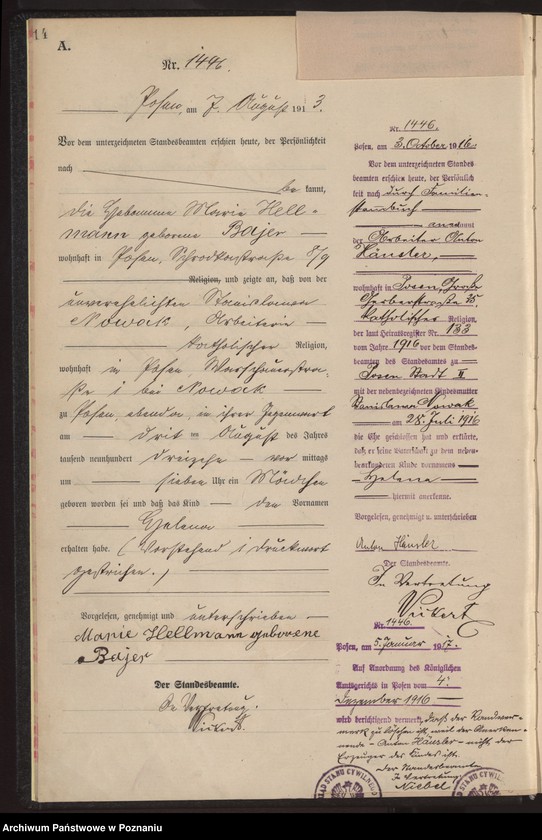 14
A.
Nr. 1446.
Posen, am 7. August 1913.
Vor dem unterzeichneten Standesbeamten erschien heute, der Persönlichkeit
nach
be kannt,
die Hebamme Marie Hell-
mann geborene Bajer
wohnhaft in Posen, Schrodkastraße 8/9
Religion, und zeigte an, daß von der
unverehelichten Stanislawa
Nowak, Arbeiterin
katholischer Religion,
wohnhaft in Posen, Warschauerstra-
ße 1 bei Nowak
zu Posen, ebenda, in ihrer Gegenwart
am drit ten August des Jahres
tausend neunhundert dreizehn vor mittags
um sieben Uhr ein Mädchen
geboren worden sei und daß das Kind den Vornamen
Helena
erhalten habe. (Vorstehend 1 Druckwort
gestrichen.)
Vorgelesen, genehmigt und unterschrieben
Marie Hellmann geborene
Bajer
Der Standesbeamte.
In Vertretung.
Nr. 1446.
Posen, am 3. October 1916.
Vor dem unterzeichneten Standes
beamten erschien heute, der Persönlich
keit nach durch Familien-
stammbuch
anerkannt
der Arbeiter Anton
Hänsler,
wohnhaft in Posen, Große
Gerberstraße 25,
katholischer Religion,
der laut Heiratsregister Nr. 133
vom Jahre 1916 vor dem Standes-
beamten des Standesamtes zu
Posen Stadt II
mit der nebenbezeichneten Kindesmutter
Stanislawa Nowak
am 28. Juli 1916
die Ehe geschlossen hat und erklärte,
daß er seine Vaterschaft zu dem neben-
bemerkten Kinde vornamens
Helena
hiermit anerkenne.
Vorgelesen, genehmigt u. unterschrieben
Anton Hänsler
Der Standesbeamte.
In Vertretung
Nr. 1446.
Posen, am 5. Januar 1917.
Auf Anordnung des Königlichen
Amtsgerichts in Posen vom 4.
Dezember 1916
wird berichtigend vermerkt, daß der Randver-
merk zu löschen ist, weil der Anerken-
nende - Anton Hänsler - nicht der
Erzeuger des Kindes ist.
Der Standesbeamte
In Vertretung
Niebel
Archiwum Państwowe w Poznaniu